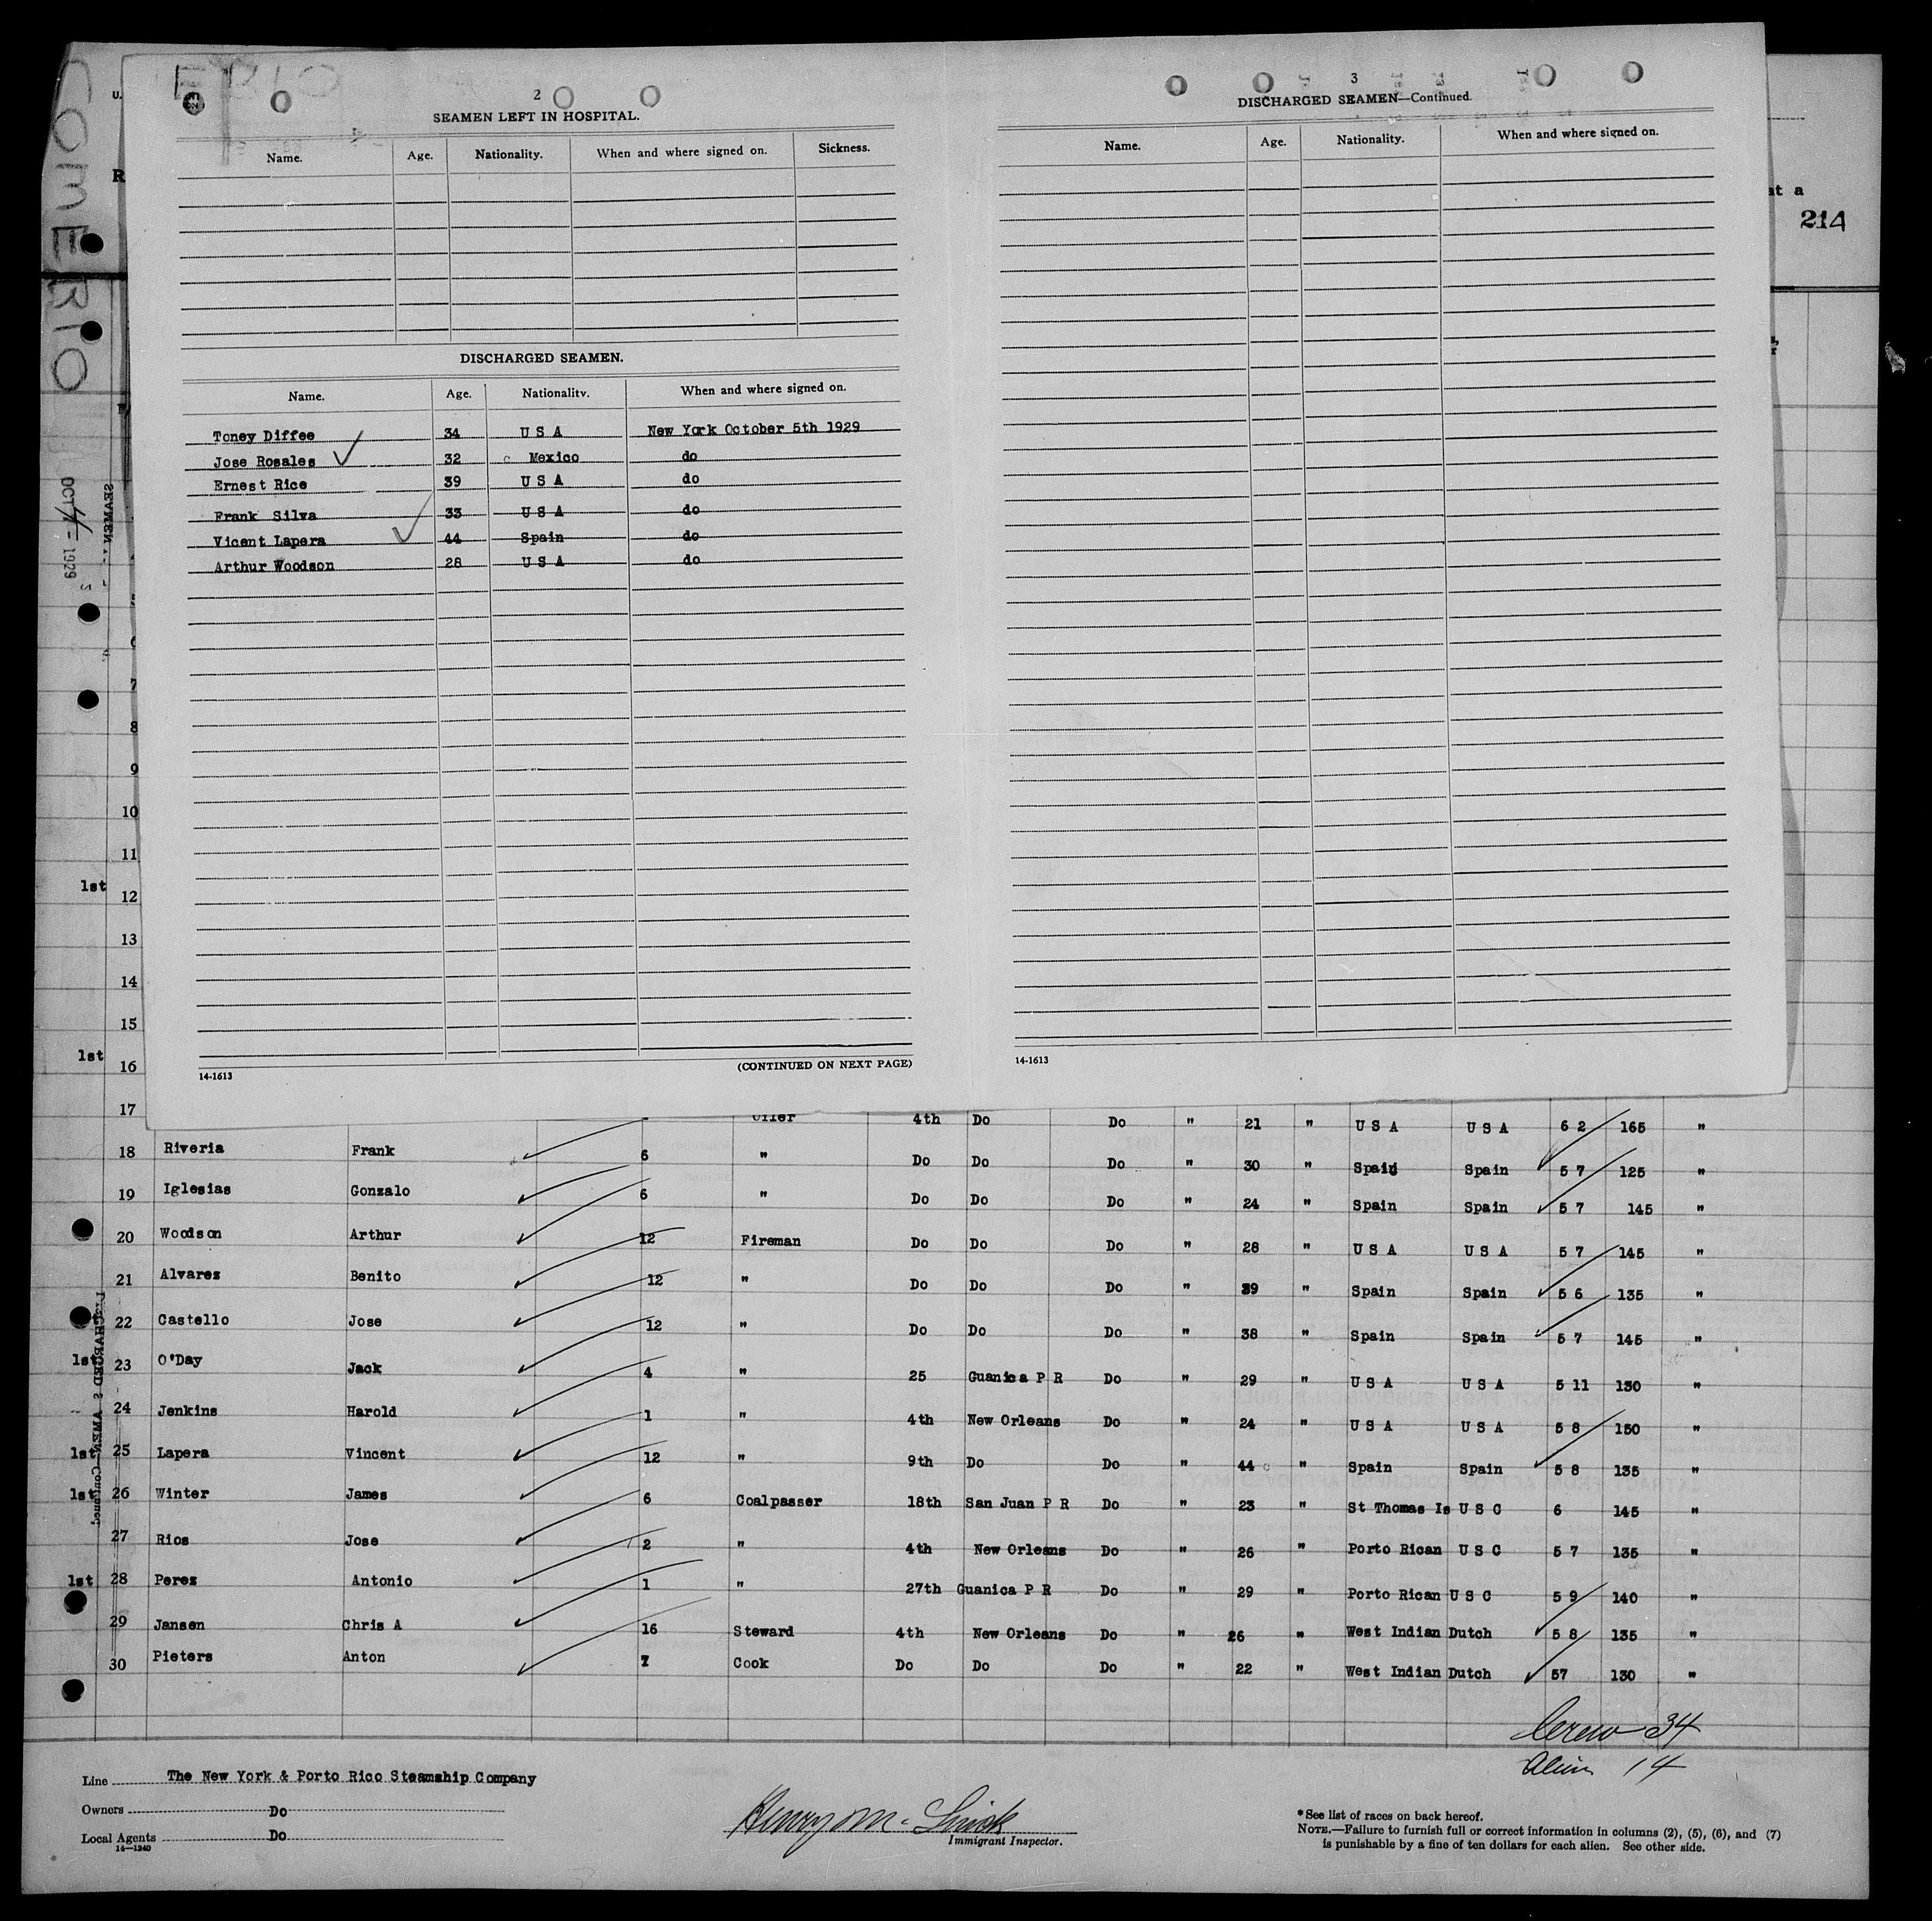 COMERIO
2
SEAMEN LEFT IN HOSPITAL.
Name. Age. Nationality. When and where signed on. Sickness.
DISCHARGED SEAMEN.
Name. Age. Nationality. When and where signed on.
Toney Diffee 34 U S A New York October 5th 1929
Jose Rosales 32 Mexico do
Ernest Rice 39 U S A do
Frank Silva 33 U S A do
Vicent Lapera 44 Spain do
Arthur Woodson 28 U S A do
14-1613 (CONTINUED ON NEXT PAGE)
3
DISCHARGED SEAMEN—Continued.
Name. Age. Nationality. When and where signed on.
14-1613
at a
214
OCT 1929
SEAMEN
DISCHARGED SEAMEN—Continued
7
8
9
10
11
1st 12
13
14
15
1st 16
17 Oiler 4th Do Do " 21 " U S A U S A 6 2 165 "
18 Riveria Frank 6 " Do Do Do " 30 " Spain Spain 5 7 125 "
19 Iglesias Gonzalo 6 " Do Do Do " 24 " Spain Spain 5 7 145 "
20 Woodson Arthur 12 Fireman Do Do Do " 28 " U S A U S A 5 7 145 "
21 Alvarez Benito 12 " Do Do Do " 39 " Spain Spain 5 6 135 "
22 Castello Jose 12 " Do Do Do " 38 " Spain Spain 5 7 145 "
1st 23 O'Day Jack 4 " 25 Guanica P R Do " 29 " U S A U S A 5 11 130 "
24 Jenkins Harold 1 " 4th New Orleans Do " 24 " U S A U S A 5 8 150 "
1st 25 Lapera Vincent 12 " 9th Do Do " 44 " Spain Spain 5 8 135 "
1st 26 Winter James 6 Coalpasser 18th San Juan P R Do " 23 " St Thomas Is U S C 6 145 "
27 Rios Jose 2 " 4th New Orleans Do " 26 " Porto Rican U S C 5 7 135 "
1st 28 Perez Antonio 1 " 27th Guanica P R Do " 29 " Porto Rican U S C 5 9 140 "
29 Jansen Chris A 16 Steward 4th New Orleans Do " 26 " West Indian Dutch 5 8 135 "
30 Pieters Anton 7 Cook Do Do Do " 22 " West Indian Dutch 57 130 "
Crew 34
Alien 14
Line The New York & Porto Rico Steamship Company
Owners Do
Local Agents Do
14—1240
Immigrant Inspector.
*See list of races on back hereof.
NOTE.—Failure to furnish full or correct information in columns (2), (5), (6), and (7)
is punishable by a fine of ten dollars for each alien. See other side.